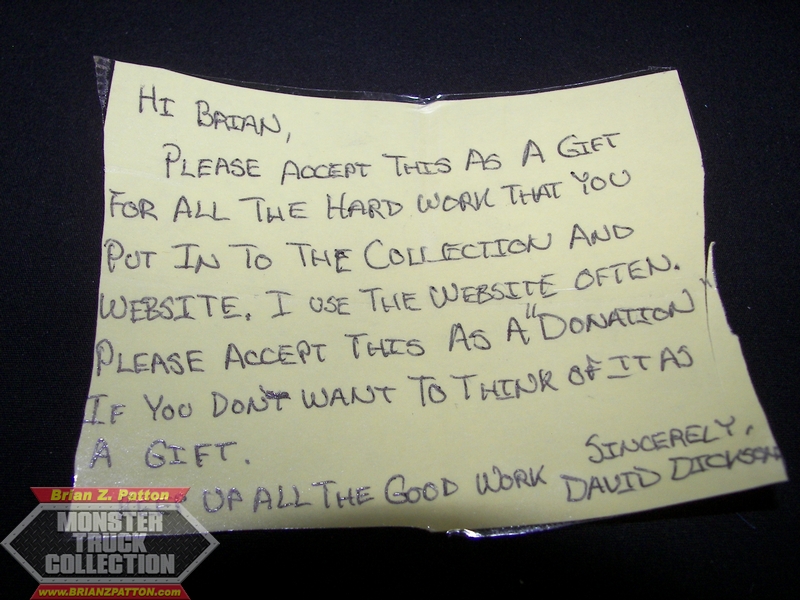 HI BRIAN,
PLEASE ACCEPT THIS AS A GIFT
FOR ALL THE HARD WORK THAT YOU
PUT IN TO THE COLLECTION AND
WEBSITE. I USE THE WEBSITE OFTEN.
PLEASE ACCEPT THIS AS A "DONATION"
IF YOU DON'T WANT TO THINK OF IT AS
A GIFT.
UP ALL THE GOOD WORK
SINCERELY,
DAVID DICKSON
Brian Z. Patton
MONSTER
TRUCK
COLLECTION
www.BRIANZPATTON.com